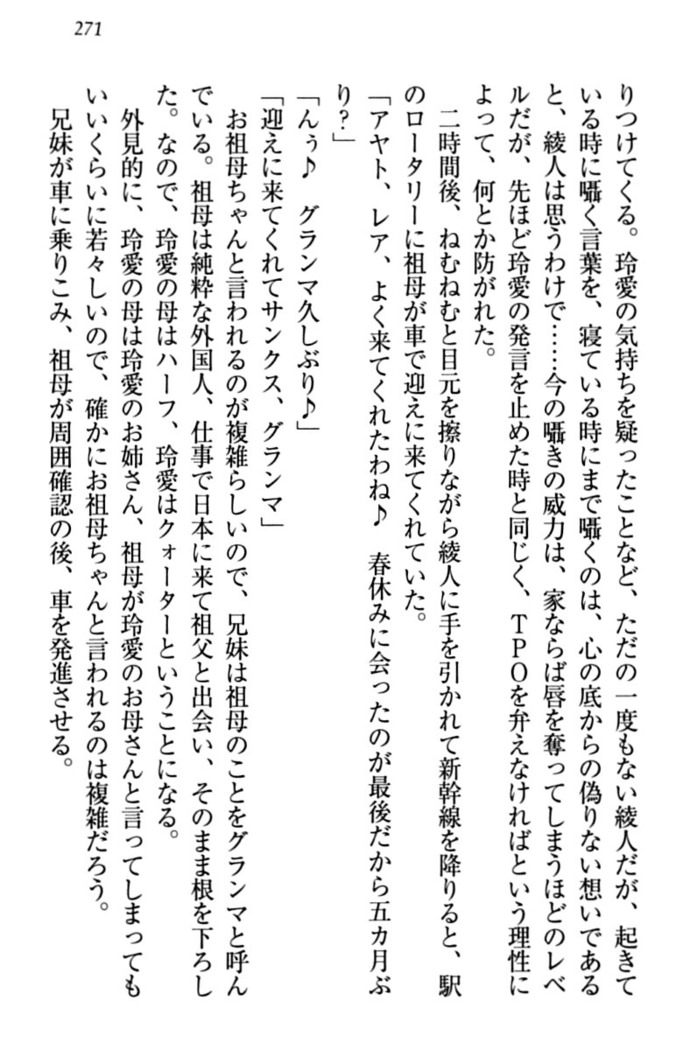 271
りつけてくる。玲愛の気持ちを疑ったことなど、ただの一度もない綾人だが、起きて
いる時に囁く言葉を、寝ている時にまで囁くのは、心の底からの偽りない想いである
と、綾人は思うわけで……今の囁きの威力は、家ならば唇を奪ってしまうほどのレベ
ルだが、先ほど玲愛の発言を止めた時と同じく、TPOを弁えなければという理性に
よって、何とか防がれた。
二時間後、ねむねむと目元を擦りながら綾人に手を引かれて新幹線を降りると、駅
のロータリーに祖母が車で迎えに来てくれていた。
「アヤト、レア、よく来てくれたわね♪　春休みに会ったのが最後だから五カ月ぶ
り?」
「んぅ♪　グランマ久しぶり♪」
「迎えに来てくれてサンクス、グランマ」
お祖母ちゃんと言われるのが複雑らしいので、兄妹は祖母のことをグランマと呼ん
でいる。祖母は純粋な外国人、仕事で日本に来て祖父と出会い、そのまま根を下ろし
た。なので、玲愛の母はハーフ、玲愛はクォーターということになる。
外見的に、玲愛の母は玲愛のお姉さん、祖母が玲愛のお母さんと言ってしまっても
いいくらいに若々しいので、確かにお祖母ちゃんと言われるのは複雑だろう。
兄妹が車に乗りこみ、祖母が周囲確認の後、車を発進させる。